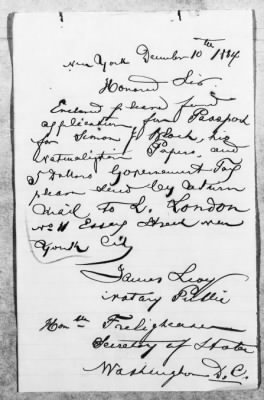 New York December 10th 1884
Honored Sir
Enclosed please find
application for Passport
for Simon Block, his
Naturalization Papers, and
5 Dollars Government Tax
please send by return
mail, to L. London
No 11 Essex Street New
York City
James Levy
Notary Public
Hon Frelinghuysen
Secretary of State
Washington D.C.